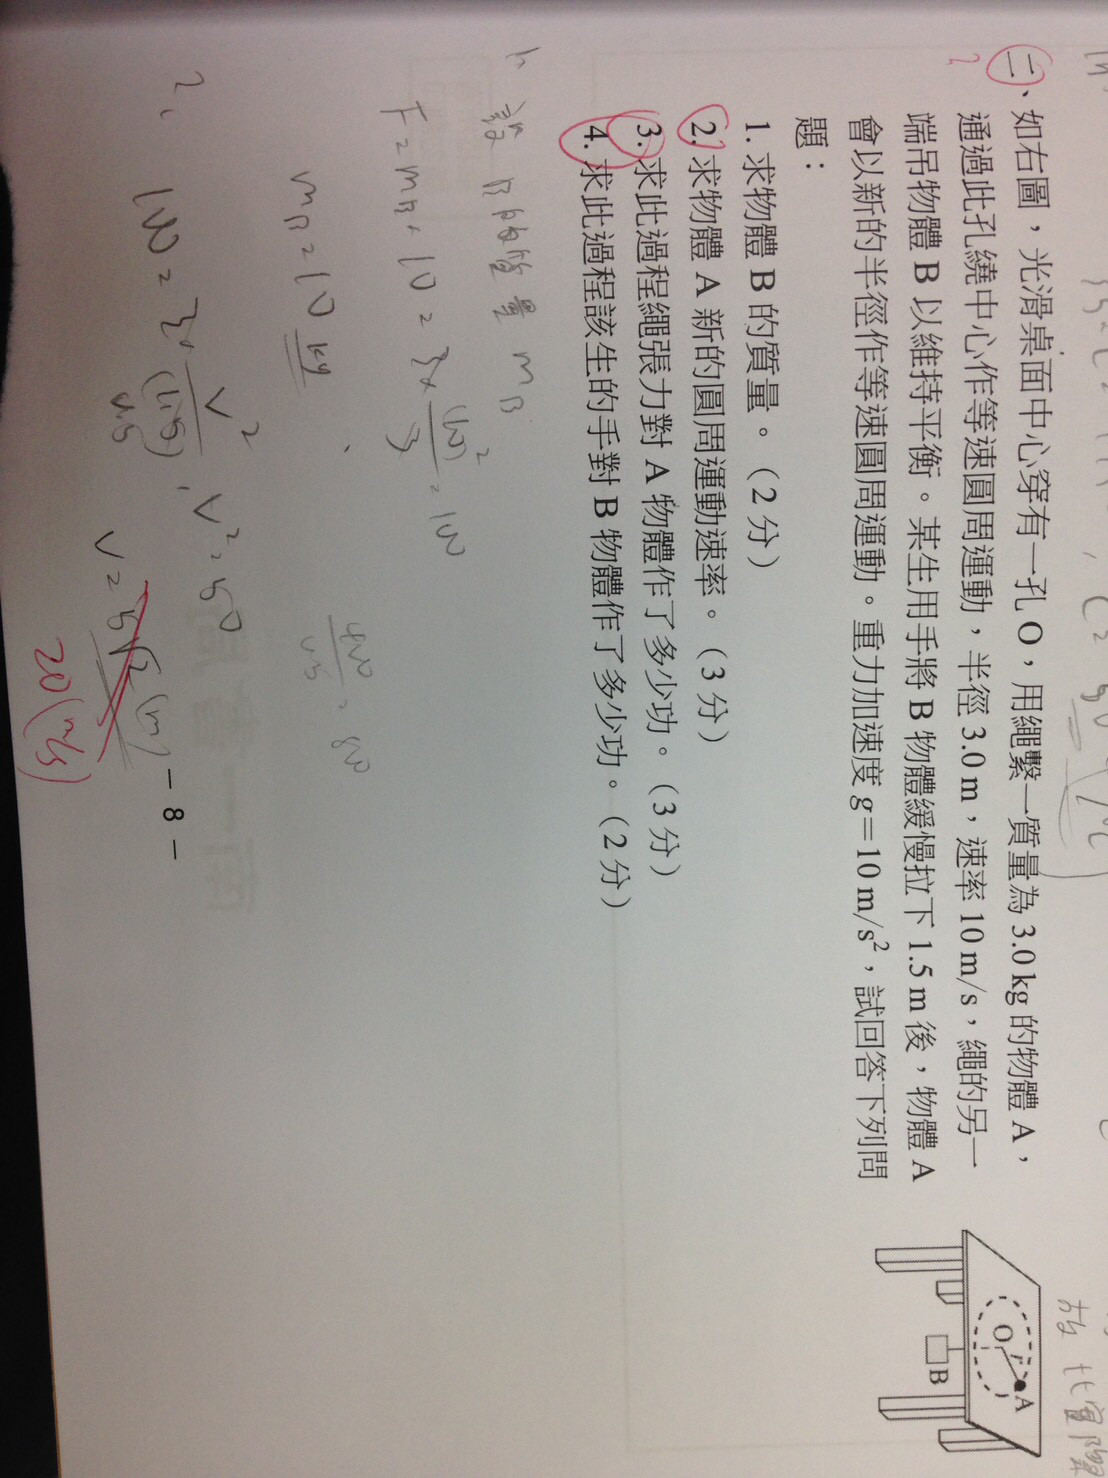 二、如右圖，光滑桌面中心穿有一孔 O，用繩繫一質量為 3.0 kg 的物體 A，
通過此孔繞中心作等速圓周運動，半徑 3.0 m，速率 10 m/s，繩的另一
端吊物體 B 以維持平衡。某生用手將 B 物體緩慢拉下 1.5 m 後，物體 A
會以新的半徑作等速圓周運動。重力加速度 g＝10 m/s²，試回答下列問
題：
1. 求物體 B 的質量。（2 分）
2. 求物體 A 新的圓周運動速率。（3 分）
3. 求此過程繩張力對 A 物體作了多少功。（3 分）
4. 求此過程該生的手對 B 物體作了多少功。（2 分）
O r A
B
1. 設 B 的質量 mB
F = mB · 10 = 3 × (10)² / 3 = 100
mB = 10 kg
2. 100 = 3 × V² / (1.5) , V² = 50
V = 5√2 (m)
20 (m/s)
－ 8 －